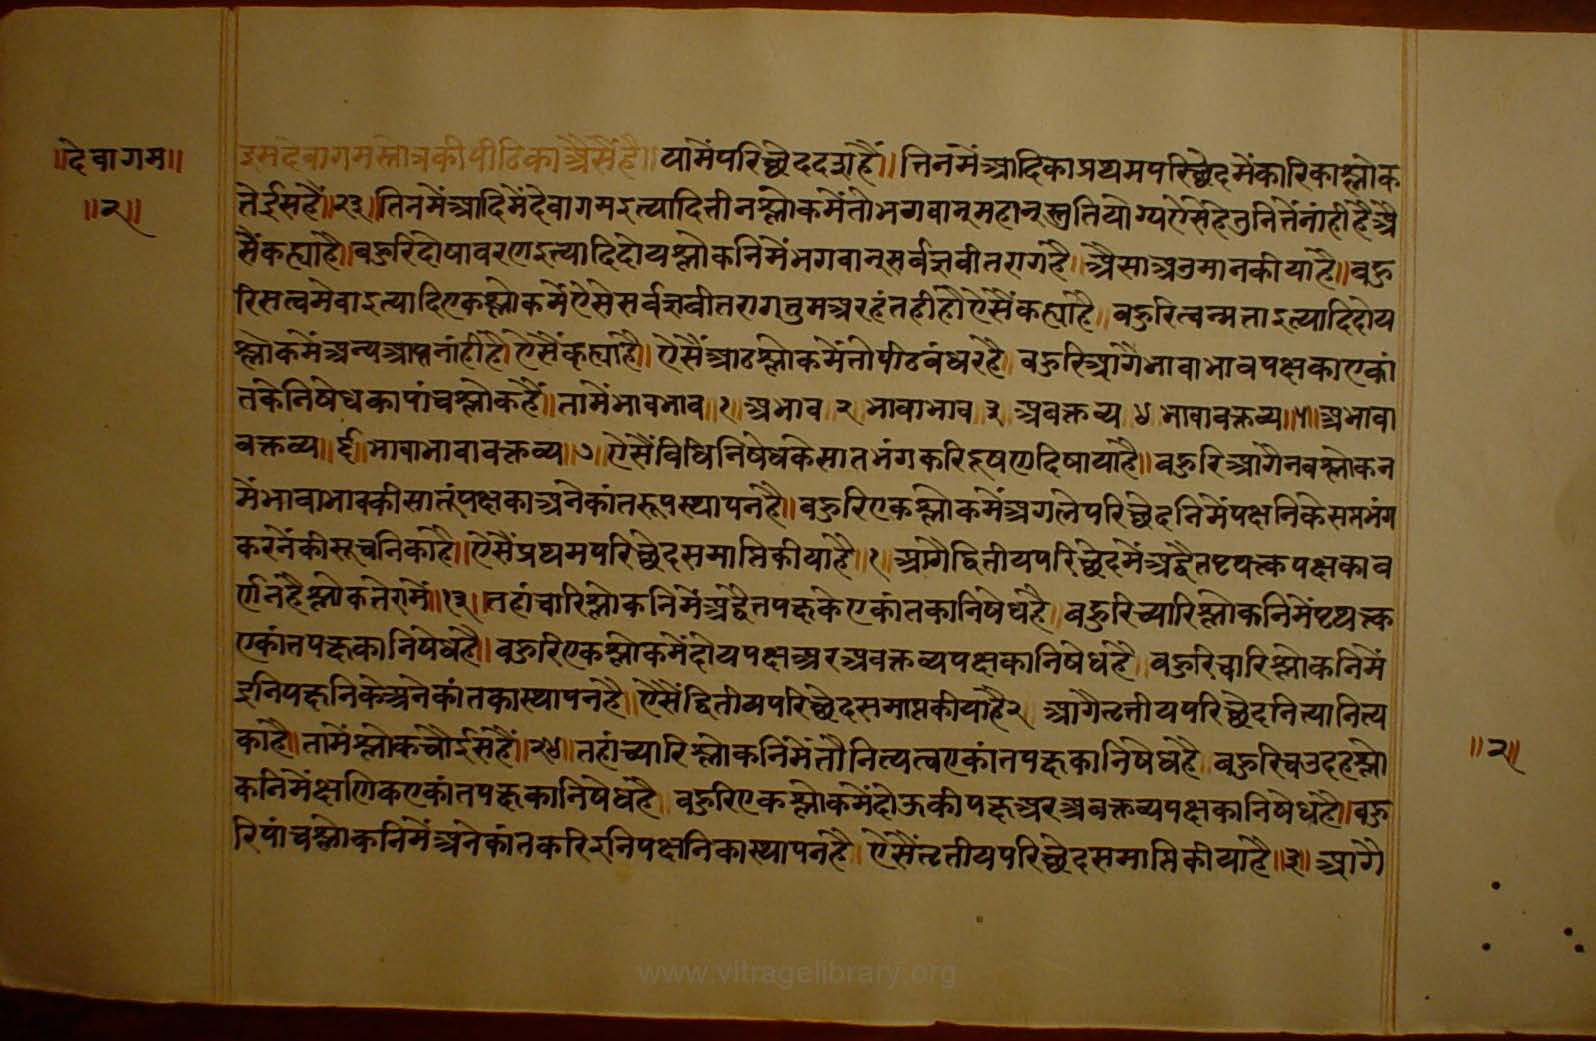 ॥देवागम॥
॥२॥
इसदेवागमस्तोत्रकीपीठिकाअैसैंहै॥यामेंपरिच्छेददशहैं॥तिनमेंआदिकाप्रथमपरिच्छेदमेंकारिकाश्लोक
तेईसहैं॥२३॥तिनमेंआदिमेंदेवागमइत्यादितीनश्लोकमेंतोभगवान्महान्स्तुतियोग्यऐसेहेतुनितेंनांहीहैअै
सैंकह्याहै॥बहुरिदोषावरणइत्यादिदोयश्लोकनिमेंभगवान्सर्वज्ञवीतरागहै॥अैसाअनुमानकीयाहै॥बहु
रिसत्वमेवाइत्यादिएकश्लोकमेंऐसेसर्वज्ञवीतरागतुमअरहंतहीहौऐसैंकह्याहै॥बहुरित्वन्मताइत्यादिदोय
श्लोकमेंअन्यआप्तनांहींहैऐसैंकह्याहै॥ऐसैंआठश्लोकमेंतोपीठबंधरहै॥बहुरिआगैभावाभावपक्षकाएकां
तकेनिषेधकापांचश्लोकहैं॥तामेंभावभाव॥१॥अभाव२भावाभाव३अवक्तव्य४भावावक्तव्य॥५॥अभावा
वक्तव्य॥६॥भावाभावावक्तव्य॥७॥ऐसैंविधिनिषेधकेसातभंगकरिदूषणदिषायाहै॥बहुरिआगैनवश्लोकन
मेंभावाभावकीसातपक्षकाअनेकांतरूपस्थापनहै॥बहुरिएकश्लोकमेंअगलेपरिच्छेदनिमेंपक्षनिकेसप्तभंग
करनेंकीसूचनिकाहै॥ऐसैंप्रथमपरिच्छेदसमाप्तिकीयाहै॥१॥आगैद्वितीयपरिच्छेदमेंअद्वैतपृथक्त्कपक्षकाव
र्णनहैश्लोकतेरामें॥१३॥तहांच्चारिश्लोकनिमेंअद्वैतपक्षकेएकांतकानिषेधहै॥बहुरिच्यारिश्लोकनिमेंपृथक्त्क
एकांतपक्षकानिषेधहै॥बहुरिएकश्लोकमेंदोयपक्षअरअवक्तव्यपक्षकानिषेधहै॥बहुरिचारिश्लोकनिमें
इनिपक्षनिकेअनेकांतकास्थापनहै॥ऐसैंद्वितीयपरिच्छेदसमाप्तकीयाहै२आगैतृतीयपरिच्छेदनित्यानित्य
काहै॥तामेंश्लोकचौईसहैं॥२४॥तहांच्यारिश्लोकनिमेंतौनित्यत्वएकांतपक्षकानिषेधहै॥बहुरिचउदहश्लो
कनिमेंक्षणिकएकांतपक्षकानिषेधहै॥बहुरिएकश्लोकमेंदोऊकीपक्षअरअवक्तव्यपक्षकानिषेधहै॥बहु
रिपांचश्लोकनिमेंअनेकांतकरिइनिपक्षनिकास्थापनहै॥ऐसैंतृतीयपरिच्छेदसमाप्तिकीयाहै॥३॥आगै
॥२॥
www.vitragelibrary.org